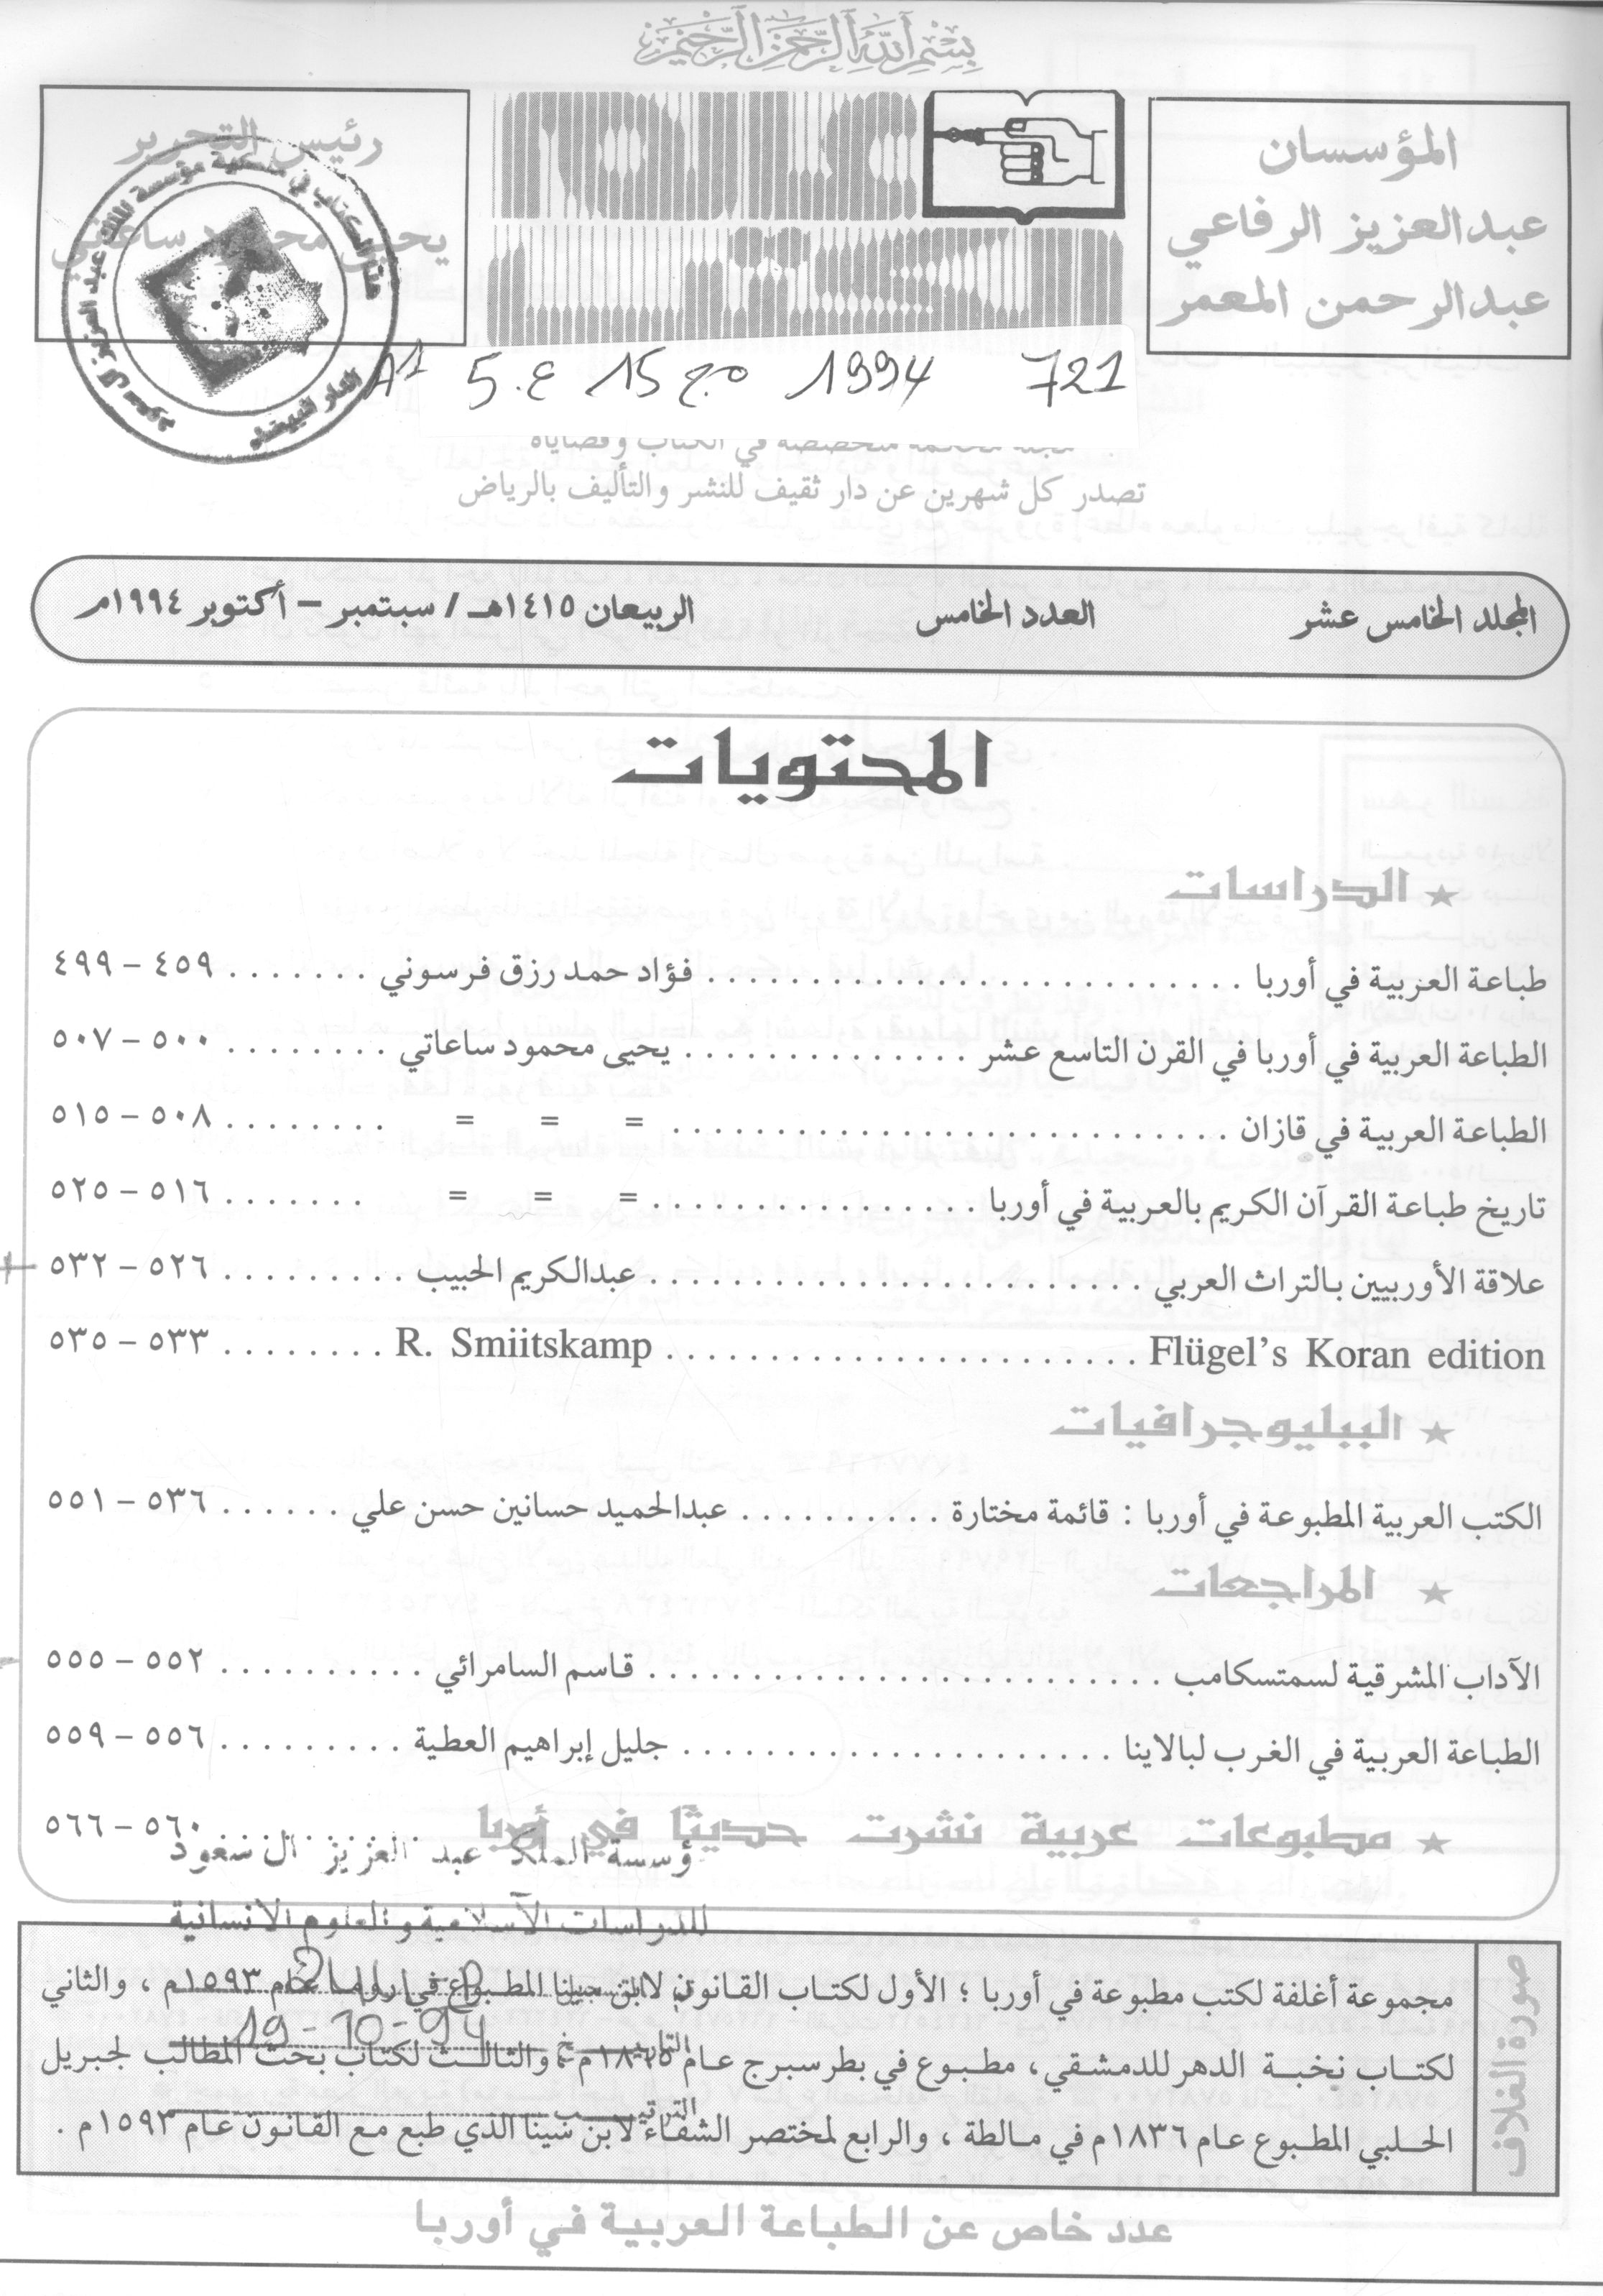 بسم الله الرحمن الرحيم
المؤسسان
عبدالعزيز الرفاعي
عبدالرحمن المعمر
رئيس التحرير
يحيى محمود ساعاتي
721 1994 مج 15 ع. 5
تصدر كل شهرين عن دار ثقيف للنشر والتأليف بالرياض
المجلد الخامس عشر العدد الخامس الربيعان ١٤١٥هـ / سبتمبر – أكتوبر ١٩٩٤م
المحتويات
★ الدراسات
طباعة العربية في أوربا . . . . . . . . . . . . . . . . . . . . . . . . . . فؤاد حمد رزق فرسوني . . . . . . . ٤٥٩ – ٤٩٩
الطباعة العربية في أوربا في القرن التاسع عشر . . . . . . . . . . . . . . يحيى محمود ساعاتي . . . . . . . . ٥٠٠ – ٥٠٧
الطباعة العربية في قازان . . . . . . . . . . . . . . . . . . . . . . . . . . . = = = . . . . . . . . ٥٠٨ – ٥١٥
تاريخ طباعة القرآن الكريم بالعربية في أوربا . . . . . . . . . . . . . . . . = = = . . . . . . . ٥١٦ – ٥٢٥
علاقة الأوربيين بالتراث العربي . . . . . . . . . . . . . . . . . . . . . . . . عبدالكريم الحبيب . . . . . . . . . ٥٢٦ – ٥٣٢
Flügel's Koran edition . . . . . . . . . . . . . . . . . . . . . . . R. Smiitskamp . . . . . . . . ٥٣٣ – ٥٣٥
★ الببليوجرافيات
الكتب العربية المطبوعة في أوربا : قائمة مختارة . . . . . . . . . . عبدالحميد حسانين حسن علي . . . . . . ٥٣٦ – ٥٥١
★ المراجعات
الآداب المشرقية لسمتسكامب . . . . . . . . . . . . . . . . . . . . . . . . . قاسم السامرائي . . . . . . . . . . ٥٥٢ – ٥٥٥
الطباعة العربية في الغرب لبالاينا . . . . . . . . . . . . . . . . . . . . . جليل إبراهيم العطية . . . . . . . . . ٥٥٦ – ٥٥٩
★ مطبوعات عربية نشرت حديثًا في أوربا ٥٦٠ – ٥٦٦
ؤسسة الملك عبد العزيز ال سعود
للدراسات الاسلامية والعلوم الانسانية
صورة الغلاف
مجموعة أغلفة لكتب مطبوعة في أوربا ؛ الأول لكتاب القانون لابن سينا المطبوع في روما عام ١٥٩٣م ، والثاني
لكتاب نخبة الدهر للدمشقي ، مطبوع في بطرسبرج عام ١٨٦٥م ، والثالث لكتاب بحث المطالب لجبريل
التاريخ 19-10-94
الحلبي المطبوع عام ١٨٣٦م في مالطة ، والرابع لمختصر الشفاء لابن سينا الذي طبع مع القانون عام ١٥٩٣م .
الترتيب
عدد خاص عن الطباعة العربية في أوربا